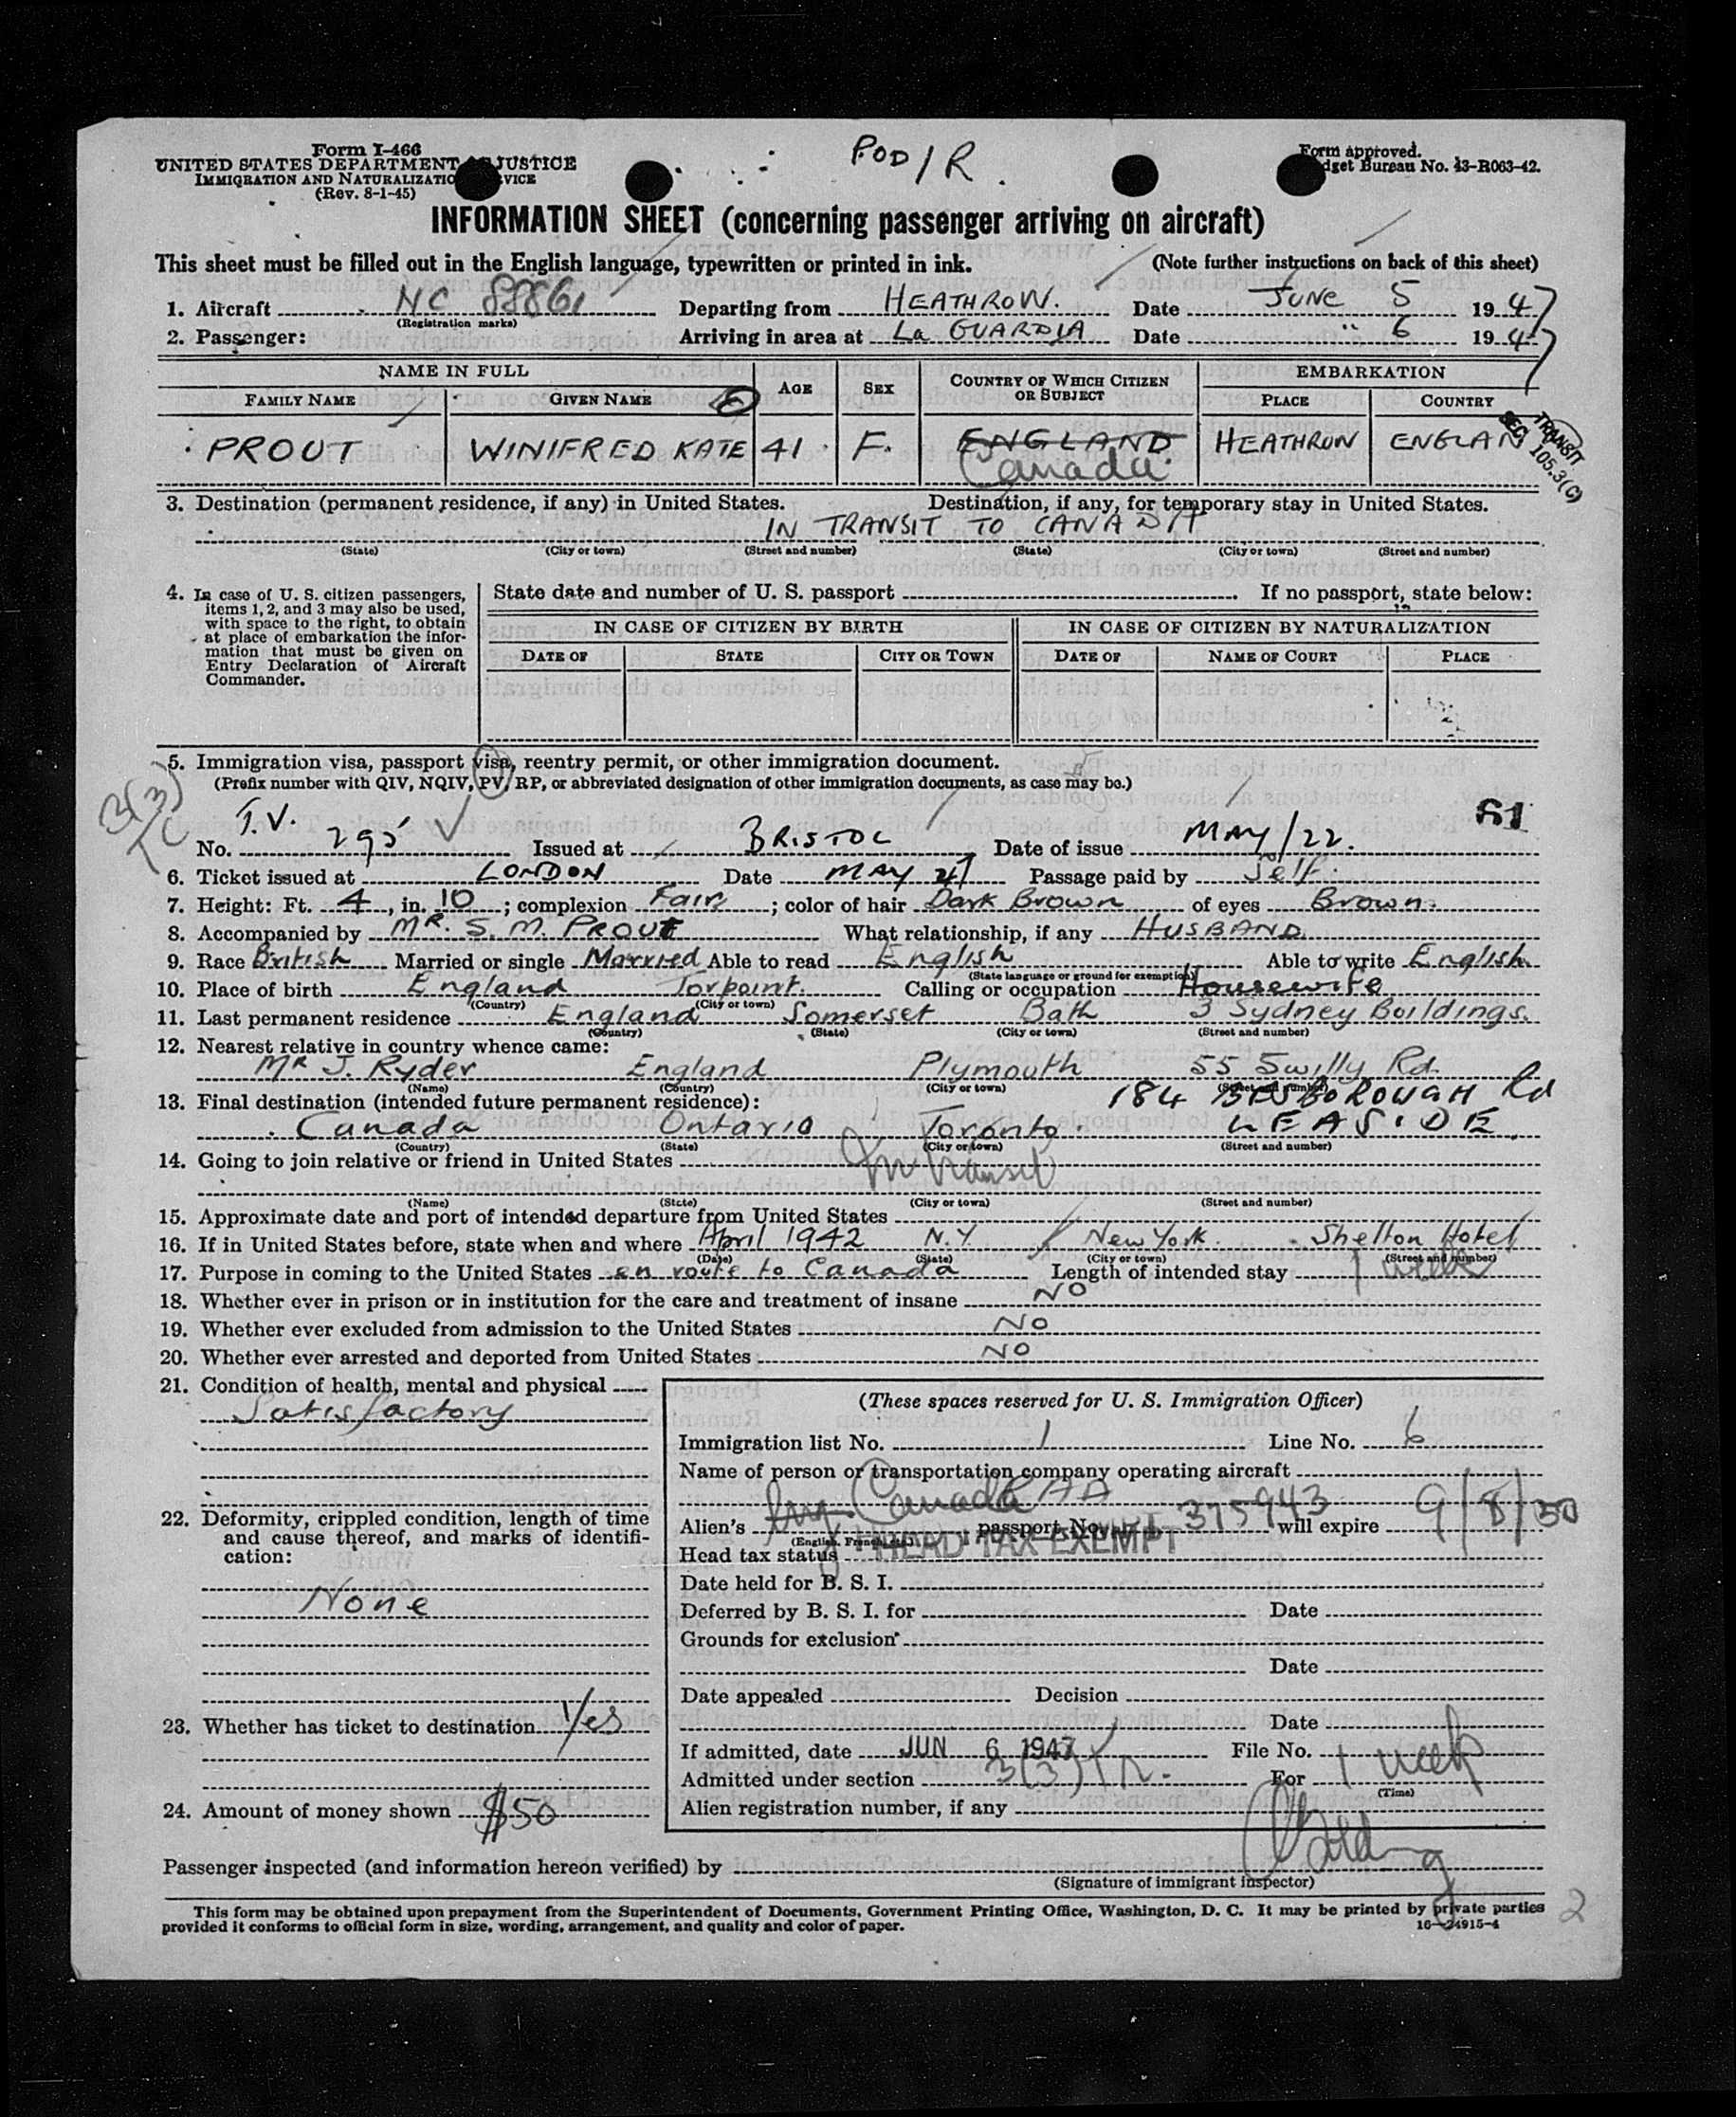 Form I-466
UNITED STATES DEPARTMENT JUSTICE
IMMIGRATION AND NATURALIZATIO VICE
(Rev. 8-1-45)
POD/R.
Form approved.
dget Bureau No. 43-R063-42.
INFORMATION SHEET (concerning passenger arriving on aircraft)
This sheet must be filled out in the English language, typewritten or printed in ink. (Note further instructions on back of this sheet)
1. Aircraft NC 88861 Departing from HEATHROW. Date JUNE 5 1947
(Registration marks)
2. Passenger: Arriving in area at La GUARDIA Date " 6 1947
NAME IN FULL AGE SEX COUNTRY OF WHICH CITIZEN OR SUBJECT EMBARKATION
FAMILY NAME GIVEN NAME PLACE COUNTRY
PROUT WINIFRED KATE 41 F. ENGLAND HEATHROW ENGLAN
Canada.
TRANSIT
SEC. 105.3(C)
3. Destination (permanent residence, if any) in United States. Destination, if any, for temporary stay in United States.
IN TRANSIT TO CANADA
(State) (City or town) (Street and number) (State) (City or town) (Street and number)
4. In case of U. S. citizen passengers, items 1, 2, and 3 may also be used, with space to the right, to obtain at place of embarkation the information that must be given on Entry Declaration of Aircraft Commander.
State date and number of U. S. passport . If no passport, state below:
IN CASE OF CITIZEN BY BIRTH IN CASE OF CITIZEN BY NATURALIZATION
DATE OF STATE CITY OR TOWN DATE OF NAME OF COURT PLACE
5. Immigration visa, passport visa, reentry permit, or other immigration document.
(Prefix number with QIV, NQIV, PV, RP, or abbreviated designation of other immigration documents, as case may be.)
3(3)
T.V.
No. 295 Issued at BRISTOL Date of issue MAY/22.
6. Ticket issued at LONDON Date MAY Passage paid by Self.
7. Height: Ft. 4, in. 10; complexion Fair; color of hair Dark Brown of eyes Brown.
8. Accompanied by MR. S. M. PROUT What relationship, if any HUSBAND
9. Race British Married or single Married Able to read English Able to write English
(State language or ground for exemption)
10. Place of birth England Torpoint. Calling or occupation Housewife
(Country) (City or town)
11. Last permanent residence England Somerset Bath 3 Sydney Buildings.
(Country) (State) (City or town) (Street and number)
12. Nearest relative in country whence came:
MR J. Ryder England Plymouth 55 Swilly Rd.
(Name) (Country) (City or town) (Street and number)
13. Final destination (intended future permanent residence): 184 BESBOROUGH Rd
Canada Ontario Toronto. LEASIDE.
(Country) (State) (City or town) (Street and number)
14. Going to join relative or friend in United States In transit
(Name) (State) (City or town) (Street and number)
15. Approximate date and port of intended departure from United States
16. If in United States before, state when and where April 1942 N.Y. New York. Shelton Hotel
(Date) (State) (City or town) (Street and number)
17. Purpose in coming to the United States en route to Canada Length of intended stay 1 week
18. Whether ever in prison or in institution for the care and treatment of insane NO
19. Whether ever excluded from admission to the United States NO
20. Whether ever arrested and deported from United States NO
21. Condition of health, mental and physical
Satisfactory
22. Deformity, crippled condition, length of time and cause thereof, and marks of identification:
None
23. Whether has ticket to destination Yes
24. Amount of money shown $50
(These spaces reserved for U. S. Immigration Officer)
Immigration list No. 1 Line No. 6
Name of person or transportation company operating aircraft
Canada
Alien's passport No. 375943 will expire 9/8/50
(English, French, etc.)
Head tax status HEAD TAX EXEMPT
Date held for B. S. I.
Deferred by B. S. I. for Date
Grounds for exclusion
Date
Date appealed Decision
Date
If admitted, date JUN 6 1947 File No.
Admitted under section 3(3) For 1 week
(Time)
Alien registration number, if any
Passenger inspected (and information hereon verified) by
(Signature of immigrant inspector)
This form may be obtained upon prepayment from the Superintendent of Documents, Government Printing Office, Washington, D. C. It may be printed by private parties
provided it conforms to official form in size, wording, arrangement, and quality and color of paper. 16—24915-4
2